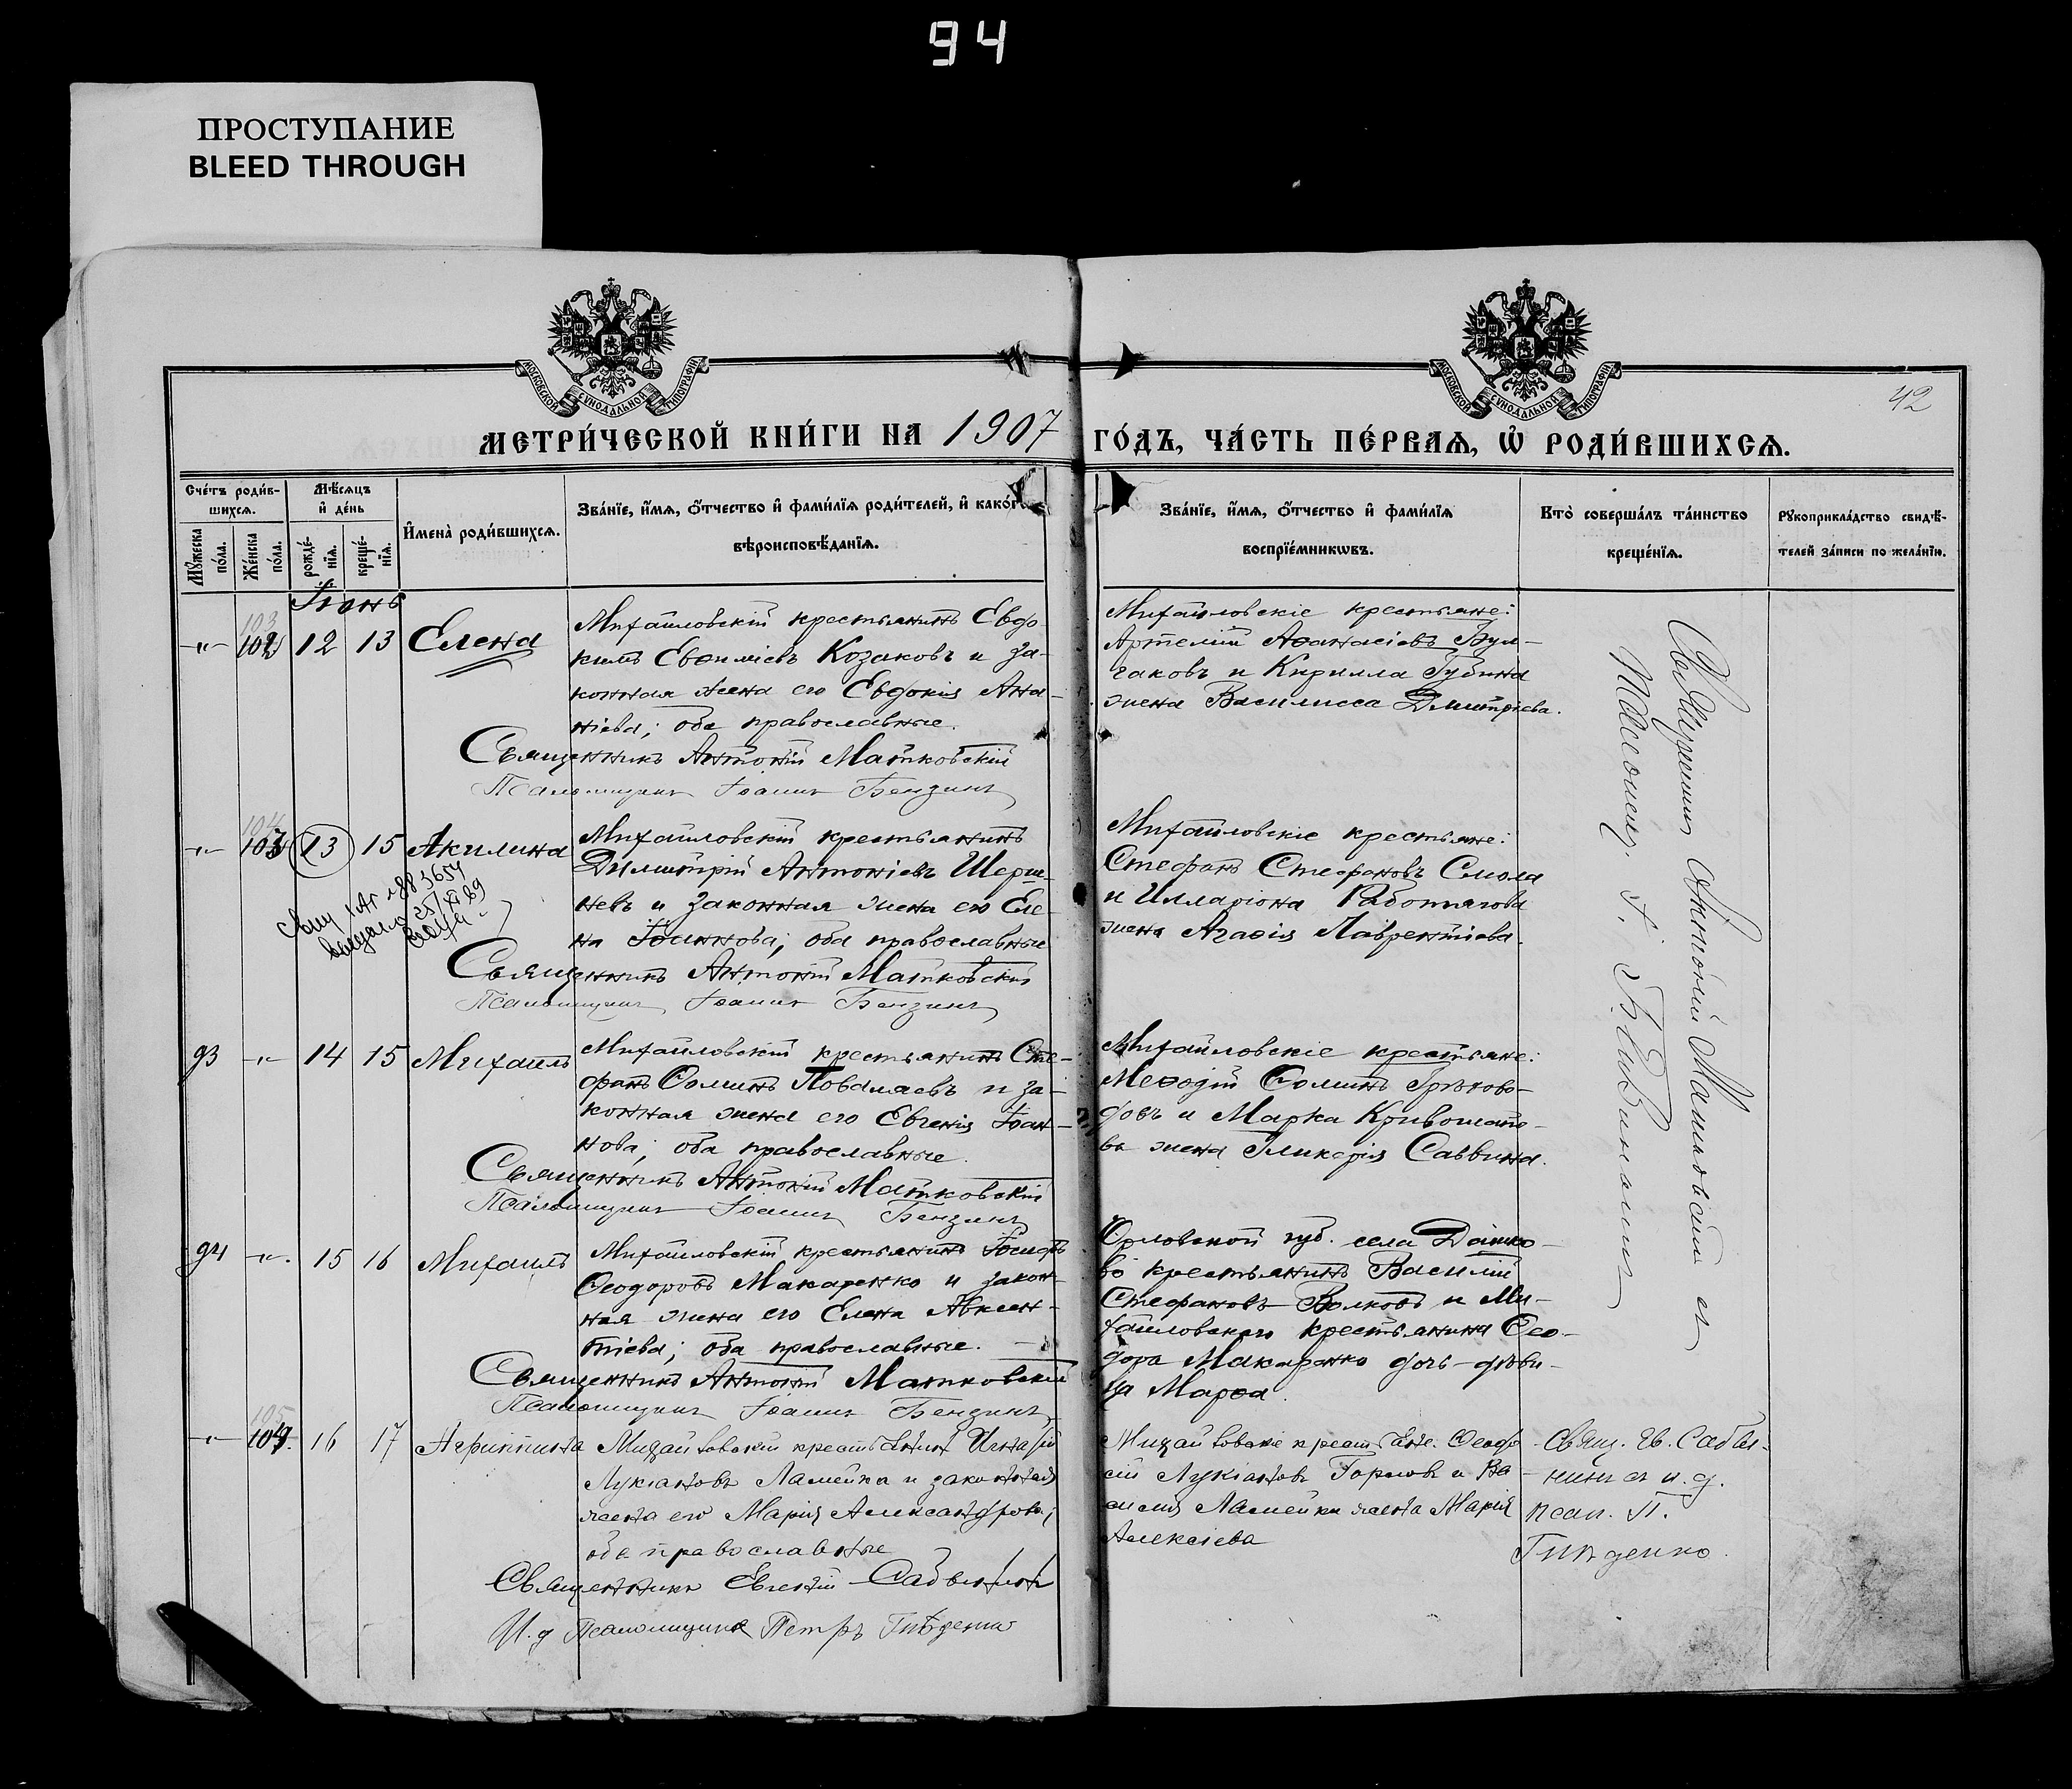 94
ПРОСТУПАНИЕ
BLEED THROUGH
МОСКОВСКОЙ СѴНОДАЛЬНОЙ ТИПОГРАФІИ
МОСКОВСКОЙ СѴНОДАЛЬНОЙ ТИПОГРАФІИ
42
МЕТРИ́ЧЕСКОЙ КНИ́ГИ НА 1907 ГО́ДЪ, ЧА́СТЬ ПЕ́РВАѦ, Ѡ҆ РОДИ́ВШИХСѦ.
Сче́тъ роди́в-
шихсѧ.
Мѣ́сѧцъ
и҆ де́нь
Мꙋ́жеска по́ла.
Же́нска по́ла.
рожде́-
нїѧ.
креще́-
нїѧ.
И҆мена̀ роди́вшихсѧ.
Зва́нїе, и҆́мѧ, ѻ҆́тчество и҆ фами́лїѧ роди́телей, и҆ како́гѡ
вѣроисповѣ́данїѧ.
Зва́нїе, и҆́мѧ, ѻ҆́тчество и҆ фами́лїѧ
воспрїе́мникѡвъ.
Кто̀ соверша́лъ та́инство
креще́нїѧ.
Рꙋкоприкла́дство свидѣ́-
телей за́писи по жела́нїю.
Іюнь
103
-"- 102 12 13 Елена
Михайловскій крестьянинъ Евдо-
кимъ Евѳиміевъ Козаковъ и за-
конная жена его Евдокія Ана-
ніева; оба православные.
Священникъ Антоній Матковскій
Псаломщикъ Іоаннъ Бензинъ
Михайловскіе крестьяне:
Артемій Аѳанасіевъ Бул-
гаковъ и Кирилла Губина
жена Василисса Дмитріева.
Священникъ Антоній Матковскій съ
Псаломщ. І. Бензинымъ
104
-"- 103 13 15 Акилина
Михайловскій крестьянинъ
Димитрій Антоніевъ Шерше-
невъ и законная жена его Еле-
на Іоаннова; оба православные
Священникъ Антоній Матковскій
Псаломщикъ Іоаннъ Бензинъ
Михайловскіе крестьяне:
Стефанъ Стефановъ Смола
и Илларіона Работягова
жена Агаѳія Лаврентіева.
93 -"- 14 15 Михаилъ
Михайловскій крестьянинъ Сте-
фанъ Ѳоминъ Поваляевъ и за-
конная жена его Евгенія Іоан-
нова; оба православные.
Священникъ Антоній Матковскій
Псаломщикъ Іоаннъ Бензинъ
Михайловскіе крестьяне:
Меѳодій Ѳоминъ Грѣхово-
довъ и Марка Кривошапо-
ва жена Гликерія Саввина.
94 -"-. 15 16 Михаилъ
Михайловскій крестьянинъ Іосифъ
Ѳеодоровъ Макаренко и закон-
ная жена его Елена Авксен-
тіева; оба православные.
Священникъ Антоній Матковскій
Псаломщикъ Іоаннъ Бензинъ
Орловской губ. села
крестьянинъ Василій
Стефановъ Волковъ и Ми-
хайловскаго крестьянина Ѳео-
дора Макаренко дочь-дѣви-
ца Марѳа.
105
-"- 104. 16 17 Агриппина
Михайловскій крестьянинъ Игнатій
Лукіановъ Ламейка и законная
жена его Марія Александрова;
оба православные
Священникъ Евгеній Савинъ
И. д Псаломщика Петръ
Михайловскіе крестьяне. Ѳеодо
сій Лукіановъ Горловъ и Ва
силія Ламейки жена Марія
Алексіева
Свящ. Ев.
и. д.
псал. П.